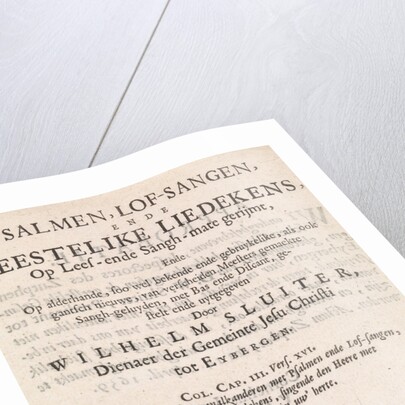 SALMEN, LOF-SANGEN,
ENDE
EESTELIKE LIEDEKENS,
Op Lees-ende Sangh-mate gerijmt,
Ende
Op alderhande, soo wel bekende ende gebruykelike, als ook
gantsch nieuwe, van verscheiden Meesters gemaekte
Sangh-geluyden, met Bas ende Discant, ge-
stelt ende uytgegeven
Door
WILHELM SLUITER,
Dienaer der Gemeinte Jesu Christi
tot EYBERGEN.
COL. CAP. III. Vers. XVI.
malkanderen met Psalmen ende Lof-sangen,
singende den Heere met
uw' herte.